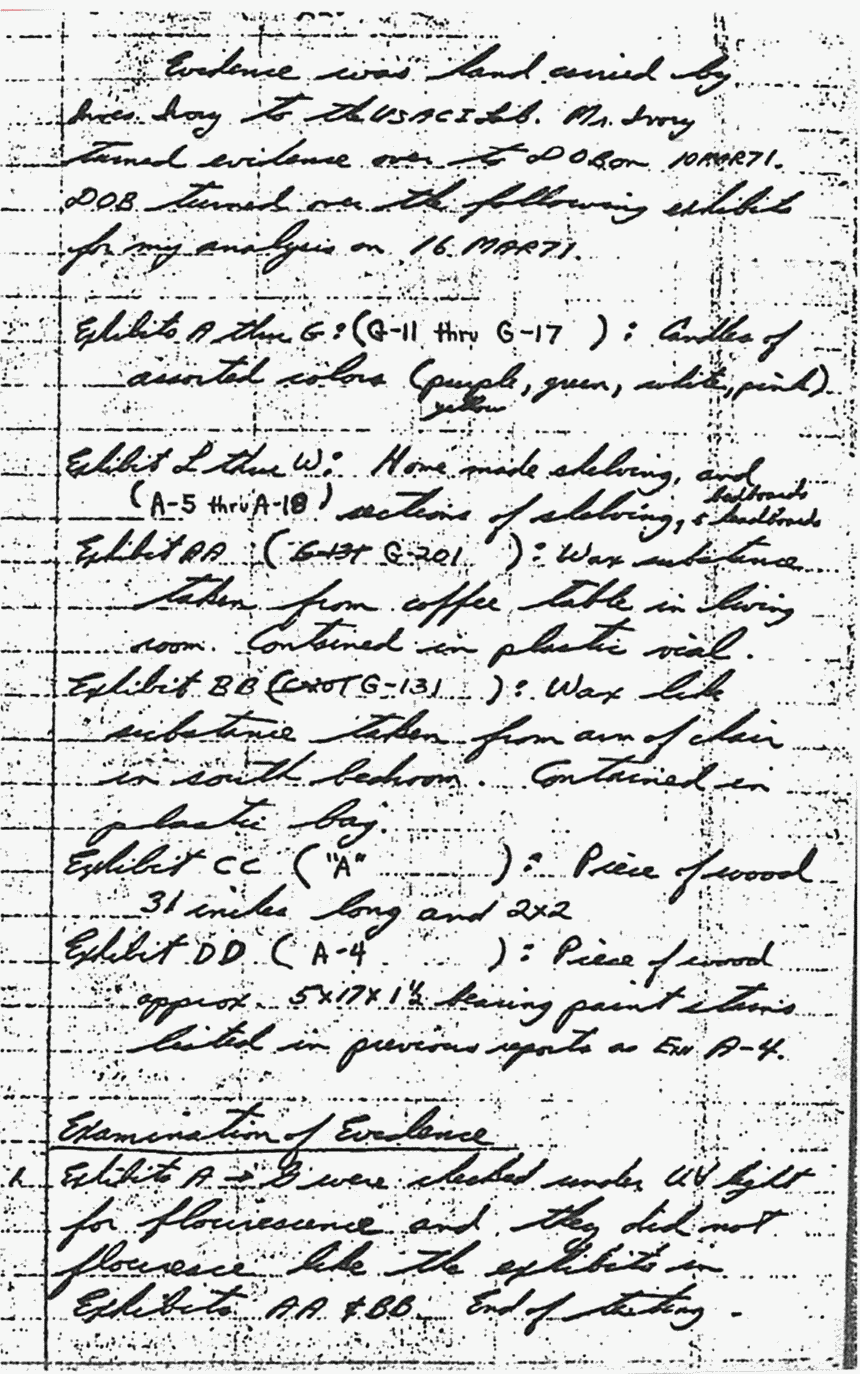 Evidence was hand carried by
Ivory to the USACI Lab. Mr. Ivory
turned evidence over to DOB on 10 MAR 71.
DOB turned over the following exhibits
for my analysis on 16 MAR 71.
Exhibits A thru G: (G-11 thru G-17 ) : Candles of
assorted colors (purple, green, white, pink)
yellow
Exhibit L thru W: Home made shelving, and
(A-5 thru A-18) sections of shelving, & headboards
bedboards
Exhibit AA ( G-201 ): Wax substance
taken from coffee table in living
room. Contained in plastic vial.
Exhibit BB ( G-131 ): Wax like
substance taken from arm of chair
in south bedroom. Contained in
plastic bag.
Exhibit CC ("A" ): Piece of wood
31 inches long and 2x2
Exhibit DD ( A-4 ): Piece of wood
approx. 5x17x1½ bearing paint stains
listed in previous reports as A-4.
Examination of Evidence
1. Exhibits A → G were checked under UV light
for flourescence and they did not
flouresce like the exhibits in
Exhibits AA & BB. End of testing.